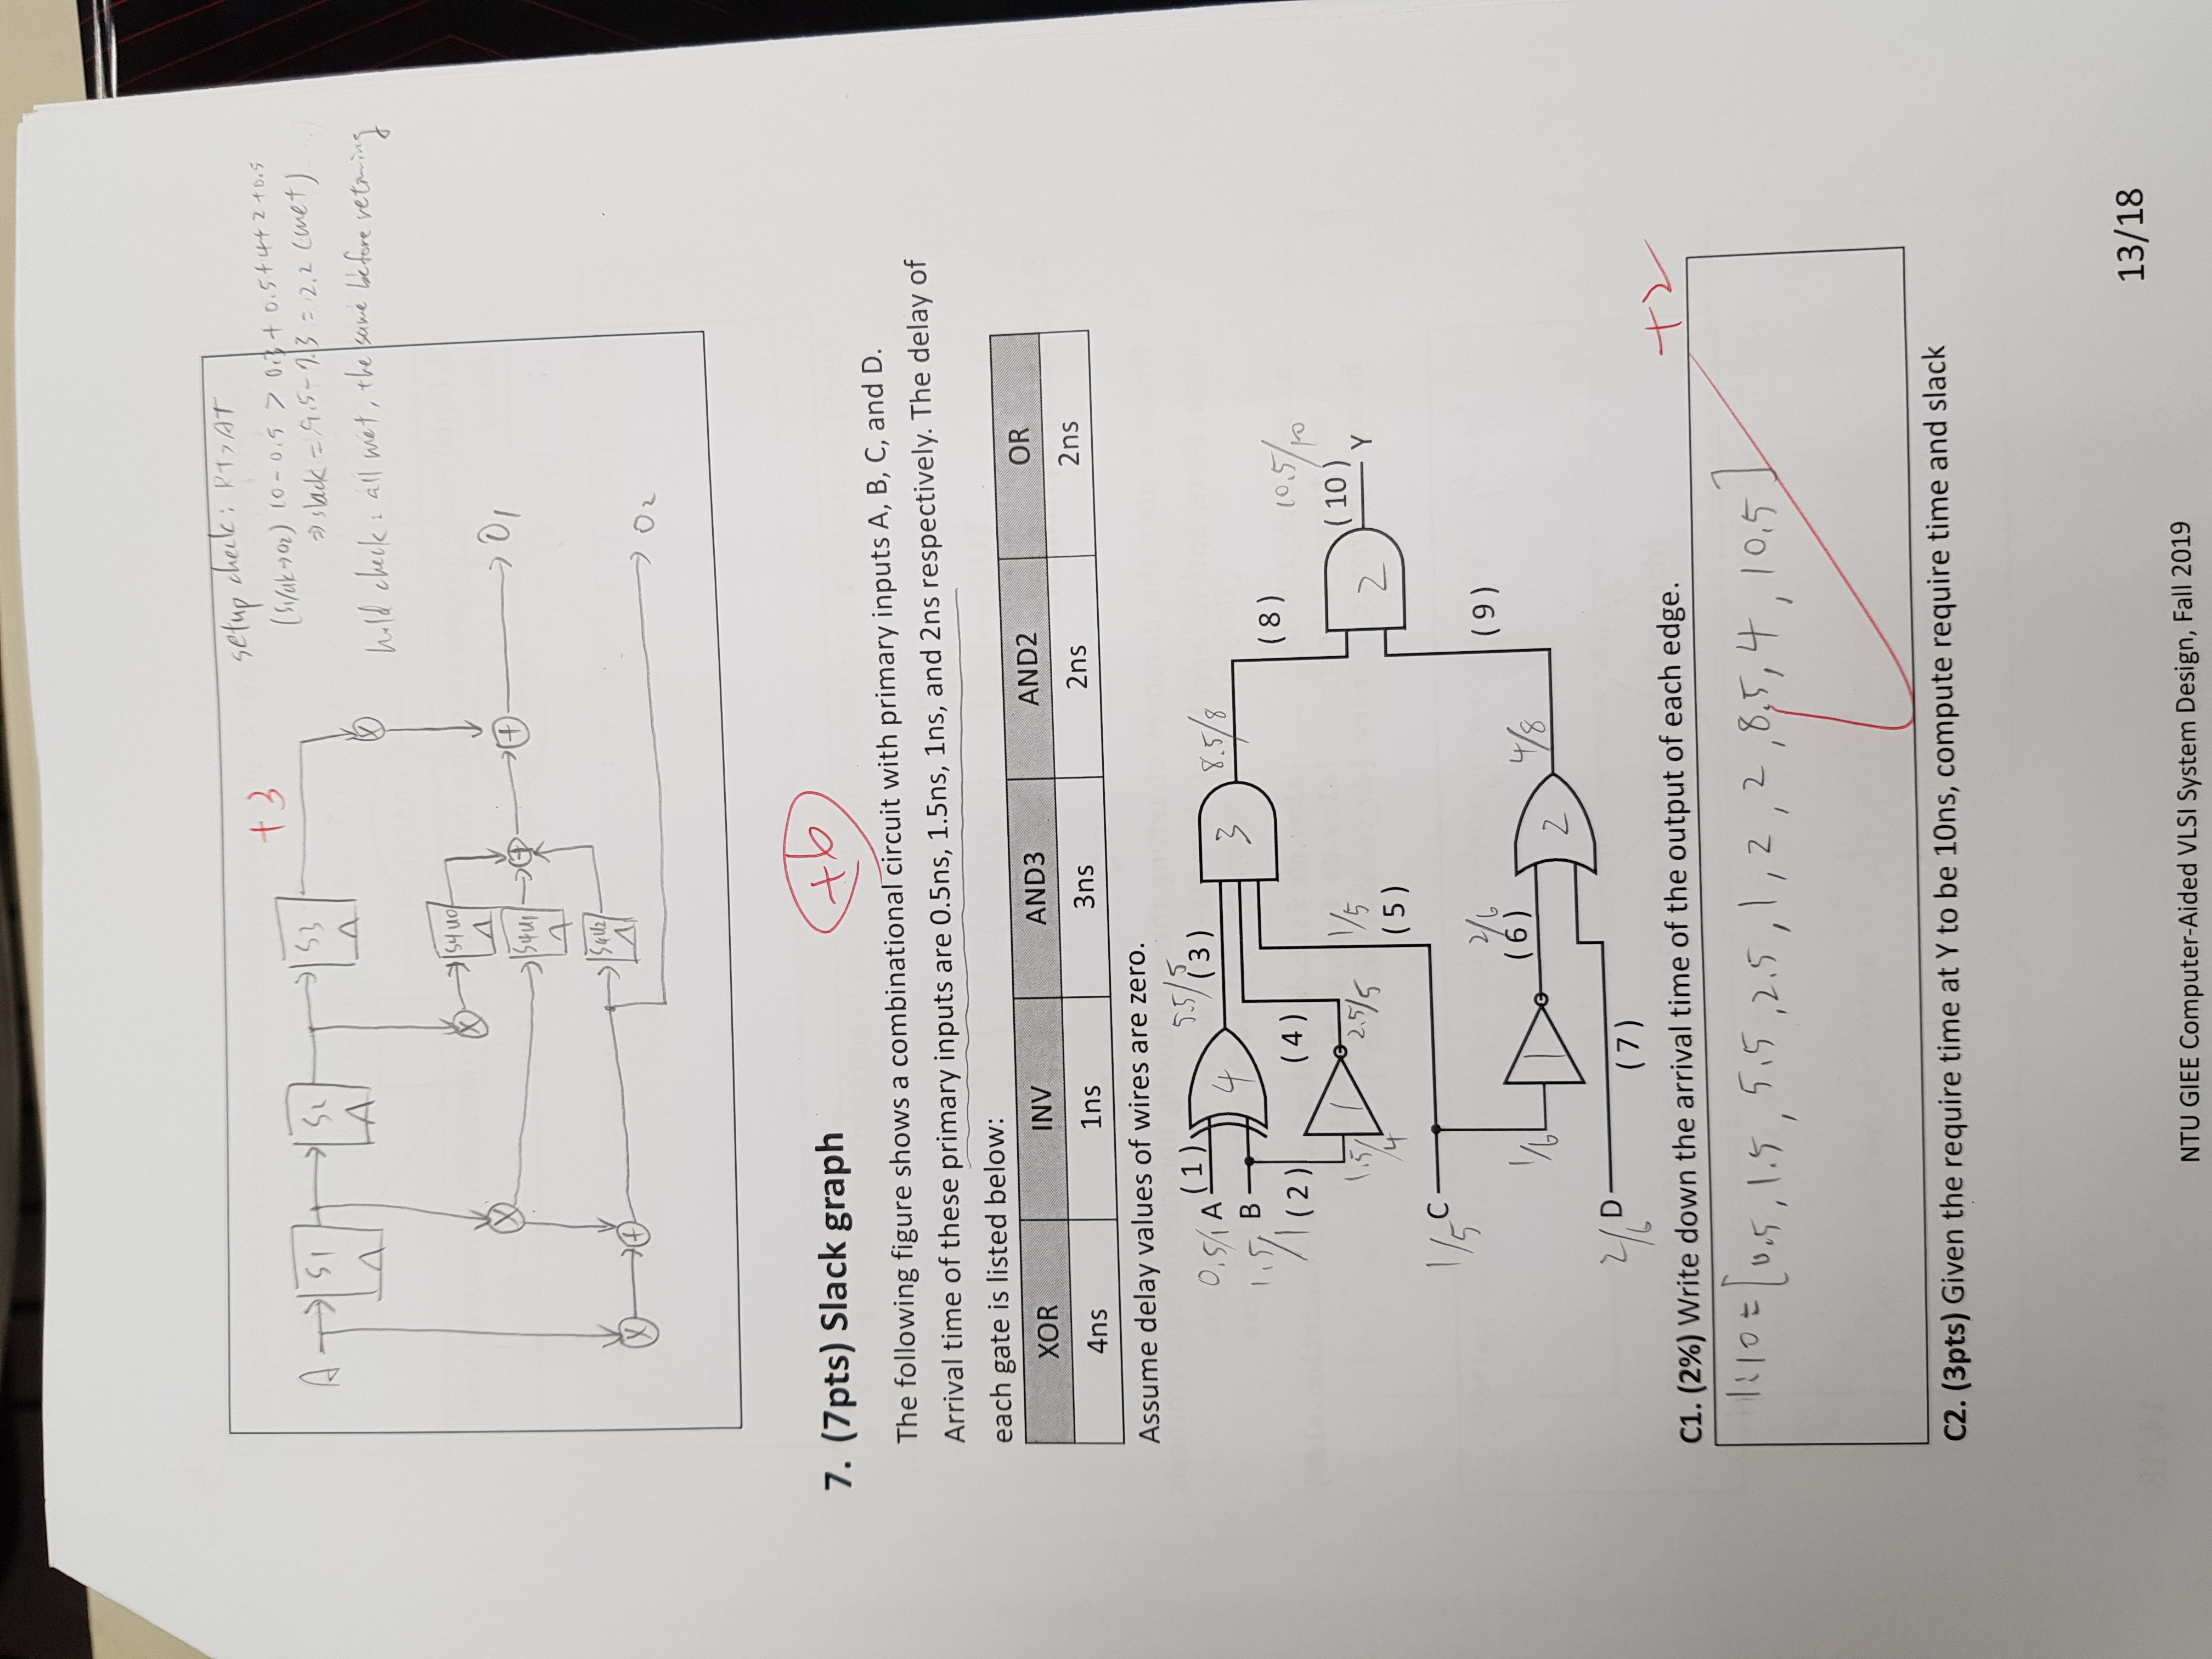 setup check: RT>AT
+3
(S1/clk→O2) 10-0.5 > 0.3 + 0.5+4+2+0.5
⇒ slack = 9.5-7.3 = 2.2 (met)
hold check: all met, the same before retiming
A
S1
S2
S3
X
S4U0
X
S4U1
+
+
O1
S4U2
X
+
O2
7. (7pts) Slack graph
+6
The following figure shows a combinational circuit with primary inputs A, B, C, and D.
Arrival time of these primary inputs are 0.5ns, 1.5ns, 1ns, and 2ns respectively. The delay of
each gate is listed below:
XOR INV AND3 AND2 OR
4ns 1ns 3ns 2ns 2ns
Assume delay values of wires are zero.
0.5/1 A (1) 4 5.5/5 (3) 3 8.5/8
1.5/1 B (2) (4) (8)
1.5/4 1 2.5/5 1/5 (5)
10.5/10 (10) 2 Y
1/5 C
(9)
1/6 1 2/6 (6) 2 4/8
2/6 D (7)
C1. (2%) Write down the arrival time of the output of each edge.
+2
1:10 = [0.5, 1.5, 5.5, 2.5, 1, 2, 2, 8.5, 4, 10.5]
C2. (3pts) Given the require time at Y to be 10ns, compute require time and slack
13/18
NTU GIEE Computer-Aided VLSI System Design, Fall 2019